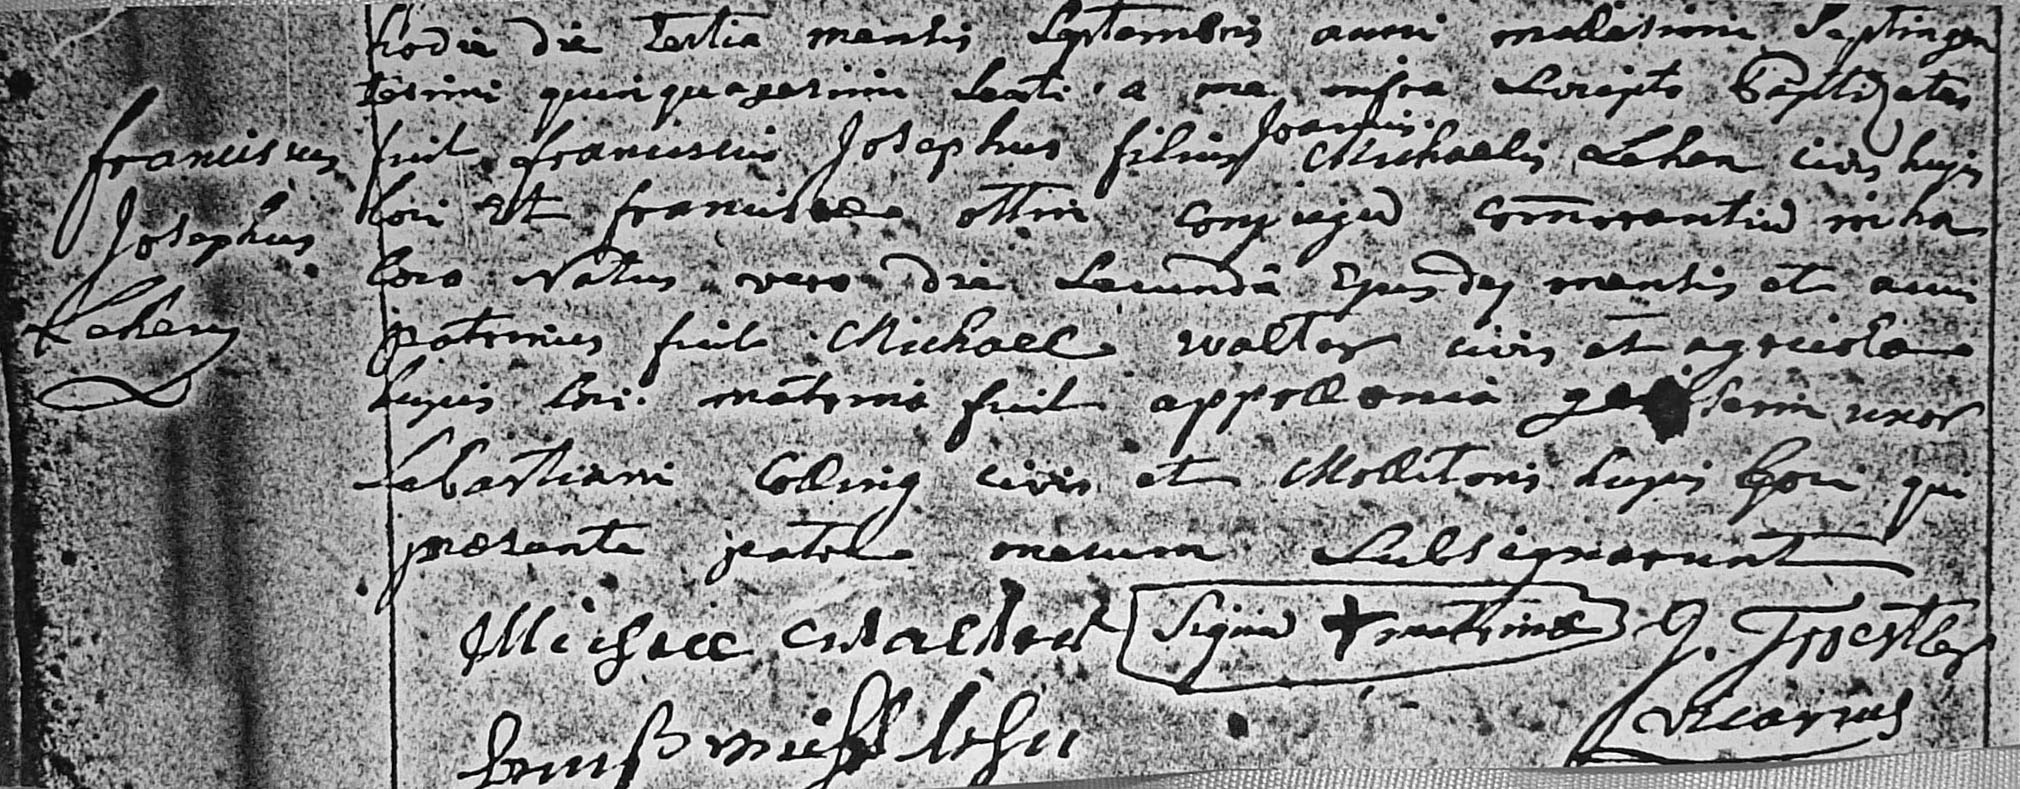 hodie die tertia mensis Septembris anni millesimi Septingen
tesimi quinquagesimi Sexti a me infra Scripto Baptizatus
franciscus fuit franciscus Josephus filius Joannis Michaelis Lehen civis hujus
Josephus loci Et franciscae ottin conjugū com̄orantiū in ho
loco Natus vero die Secunda Ejusdej mensis et anni
Lehen patrinus fuit Michael walter civis et agricola
hujus loci. matrina fuit appollonia uxor
Sebastiani Colling civis et Mollitoris hujus loci qui
presente patre mecum Subsignarunt
Michael Walter Signū + matrinae J. Troestler
hans michel lehn vicarius